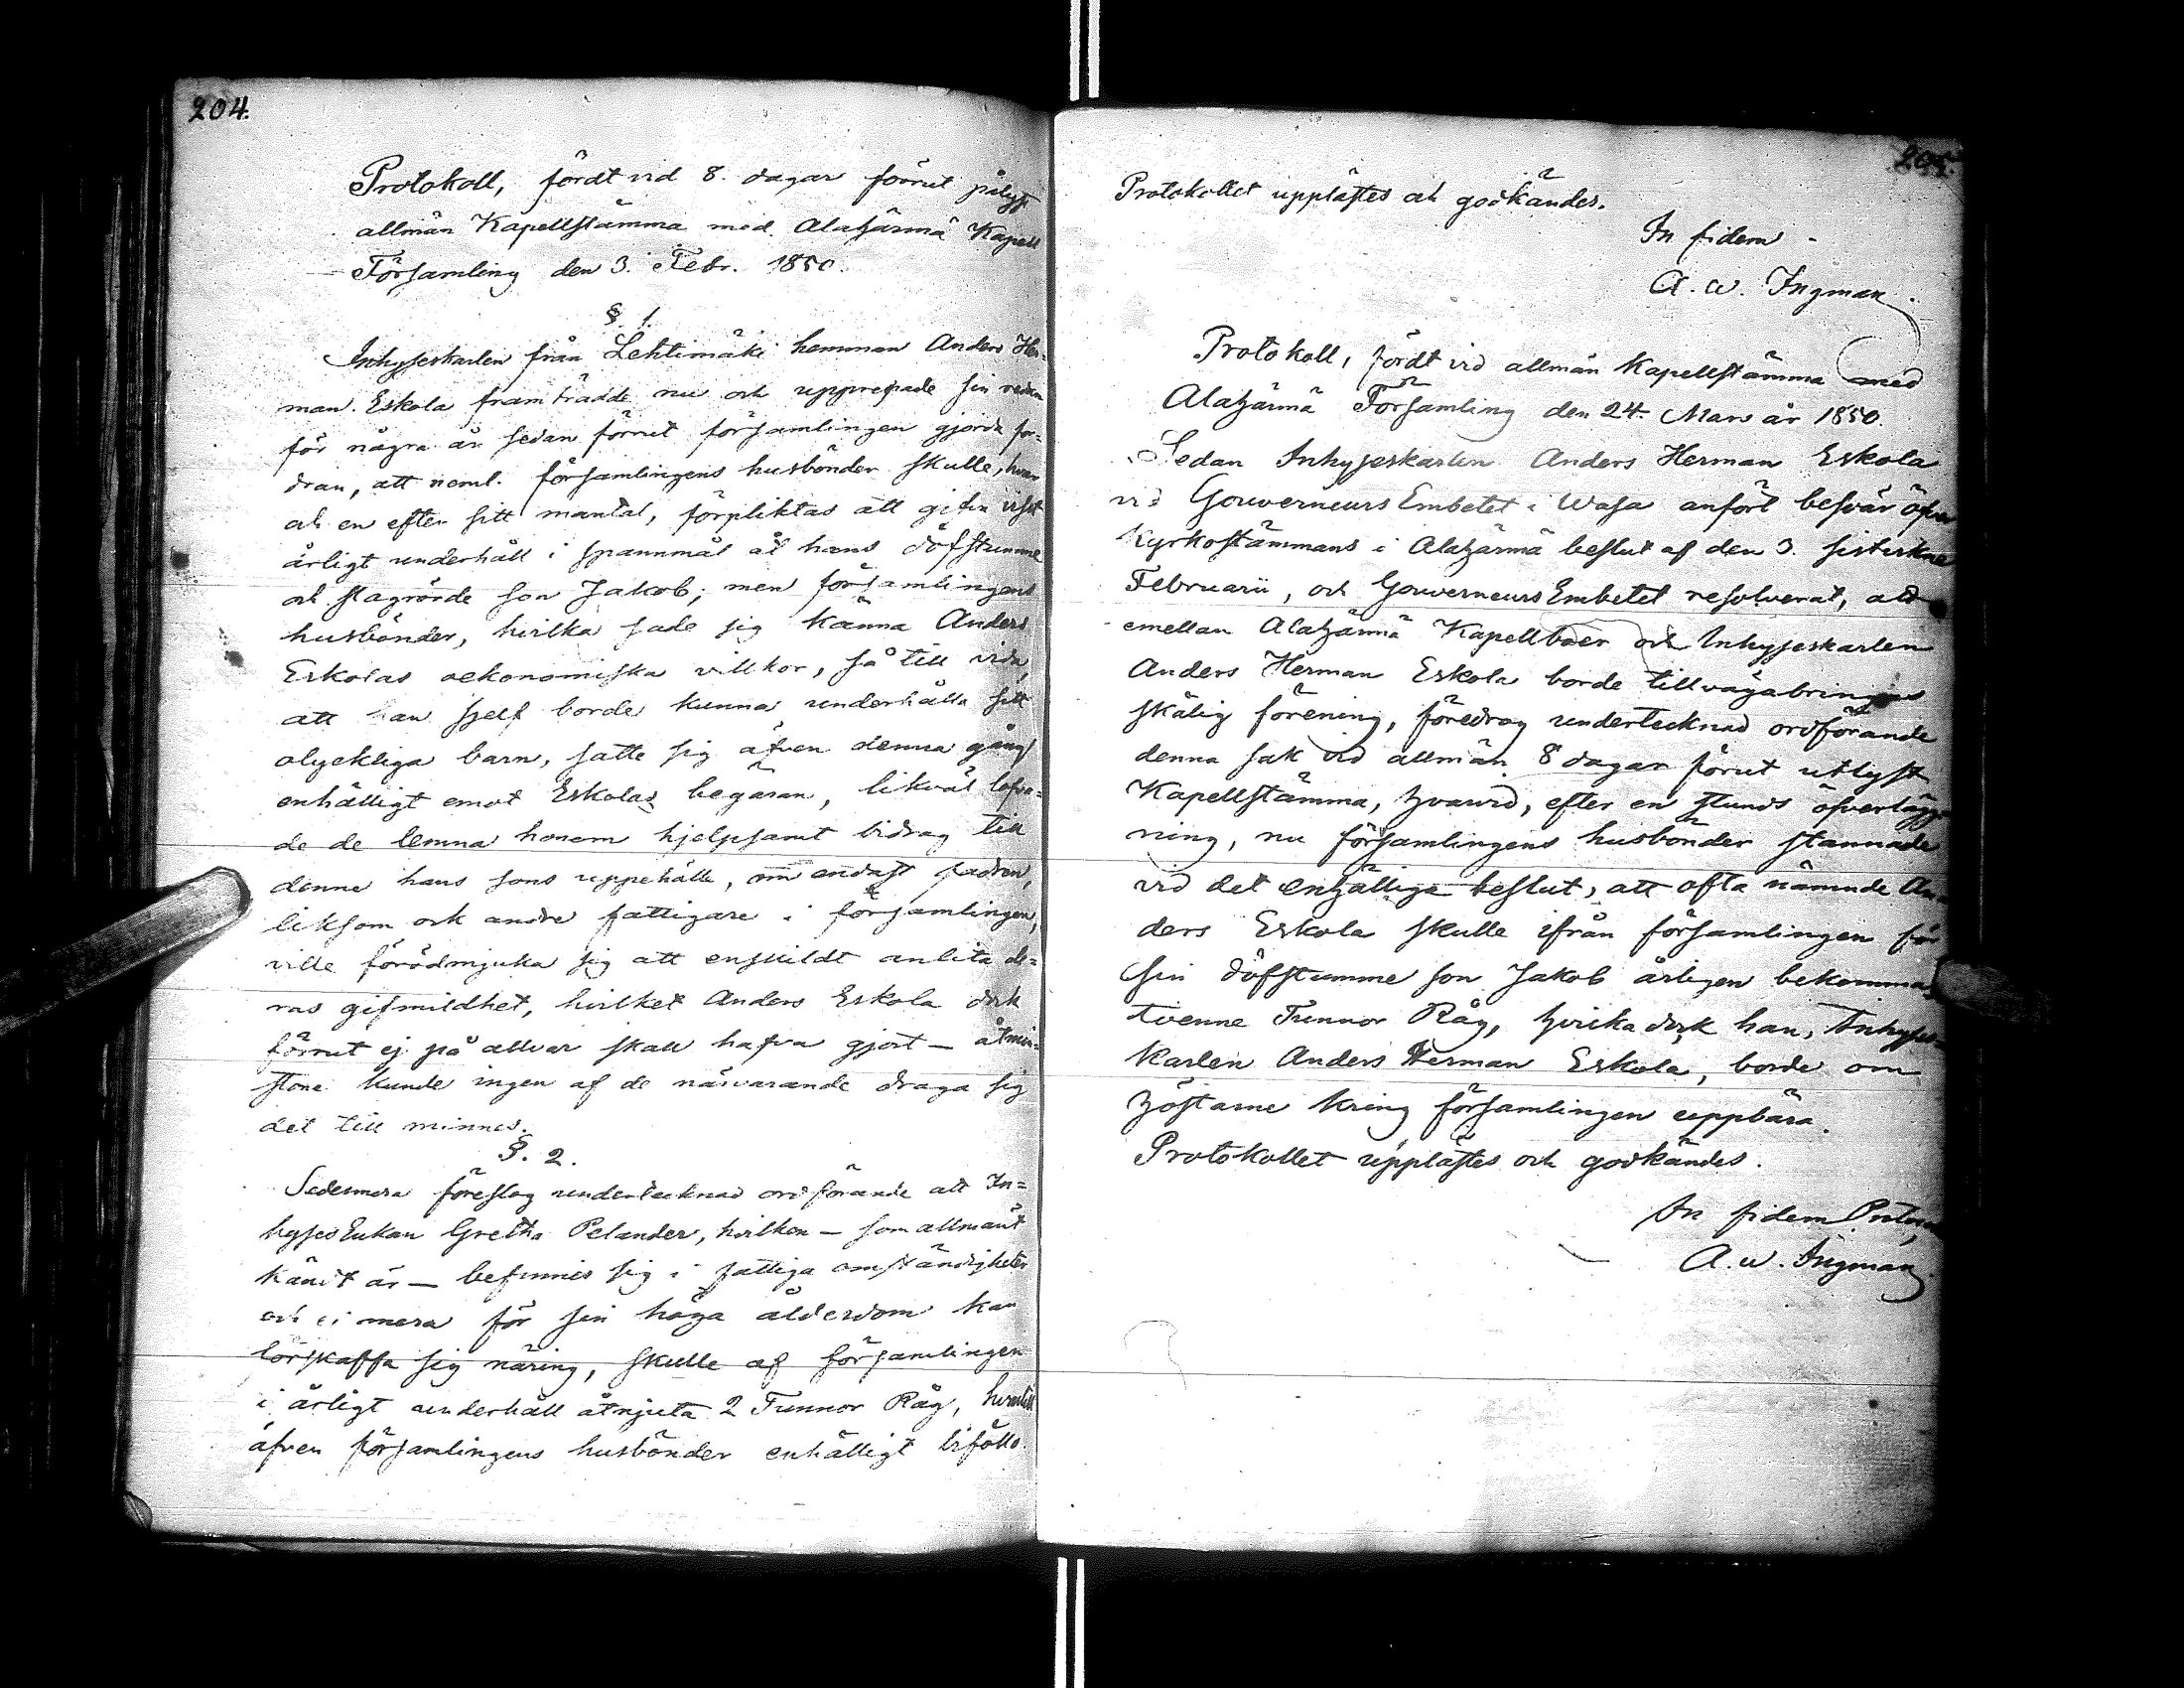 204.
Protokoll, fördt vid 8. dagar förrut pålyst
allmän Kapellstämma med Alahärmä Kapell
Församling den 3. Febr. 1850.
§. 1.
Inhyseskarlen från Lehtimäki hemman Anders Her=
man. Eskola framträdde nu och upprepade sin redan
för några år sedan förrut församlingen gjorda for=
dran, att neml. församlingens husbönder skulle, hvar
och en efter sitt mantal, förpliktas att gifva visst
årligt underhåll i spannmål åt hans döfstumme
och slagrörde son Jakob; men församlingens
husbönder, hvilka sade sig känna Anders
Eskolas oekonomiska villkor, så till vida,
att han sjelf borde kunna underhålla sitt
olyckliga barn, satte sig äfven denna gång
enhälligt emot Eskolas begäran, likväl lofva=
de de lemna honom hjelpsamt bidrag till
denne hans sons uppehälle, om endast fadren,
liksom ock andre fattigare i församlingen,
ville förödmjuka sig att enskildt anlita de=
ras gifmildhet, hvilket Anders Eskola dock
förrut ej på allvar skall hafva gjort — åtmin=
stone kunde ingen af de närvarande draga sig
det till minnes.
§. 2.
Sedermera föreslog undertecknad ordförande att In=
hyses Enkan Gretha Pelander, hvilken — som allmänt
kändt är — befinnes sig i fattiga omständigheter
och ei mera för sin höga ålderdom kan
förskaffa sig näring, skulle af församlingen
i årligt underhåll åtnjuta 2 Tunnor Råg, hvartill
äfven församlingens husbönder enhälligt biföllo.
205.
Protokollet upplästes och godkändes.
In fidem
A. W. Ingman.
Protokoll, fördt vid allmän Kapellstämma med
Alahärmä Församling den 24. Mars år 1850.
Sedan Inhyseskarlen Anders Herman Eskola
vid Gouverneurs Embetet i Wasa anfört besvär öfver
Kyrkostämmans i Alahärmä beslut af den 3. sistvikne
Februarii, och Gouverneurs Embetet resolverat, att
emellan Alahärmä Kapellboer och Inhyseskarlen
Anders Herman Eskola borde tillvägabringas
skälig förening, föredrog undertecknad ordförande
denna sak vid allmän 8 dagar förut utlyst
Kapellstämma, hvarvid, efter en stunds öfverlägg
ning, nu församlingens husbönder stannade
vid det enhälliga beslut, att ofta nämnde An=
ders Eskola skulle ifrån församlingen för
sin döfstumme son Jakob årligen bekomma
tvenne Tunnor Råg, hvilka dock han, Inhyses=
karlen Anders Herman Eskola, borde om
höstarne kring församlingen uppbära.
Protokollet upplästes och godkändes.
In fidem
A. W. Ingman.